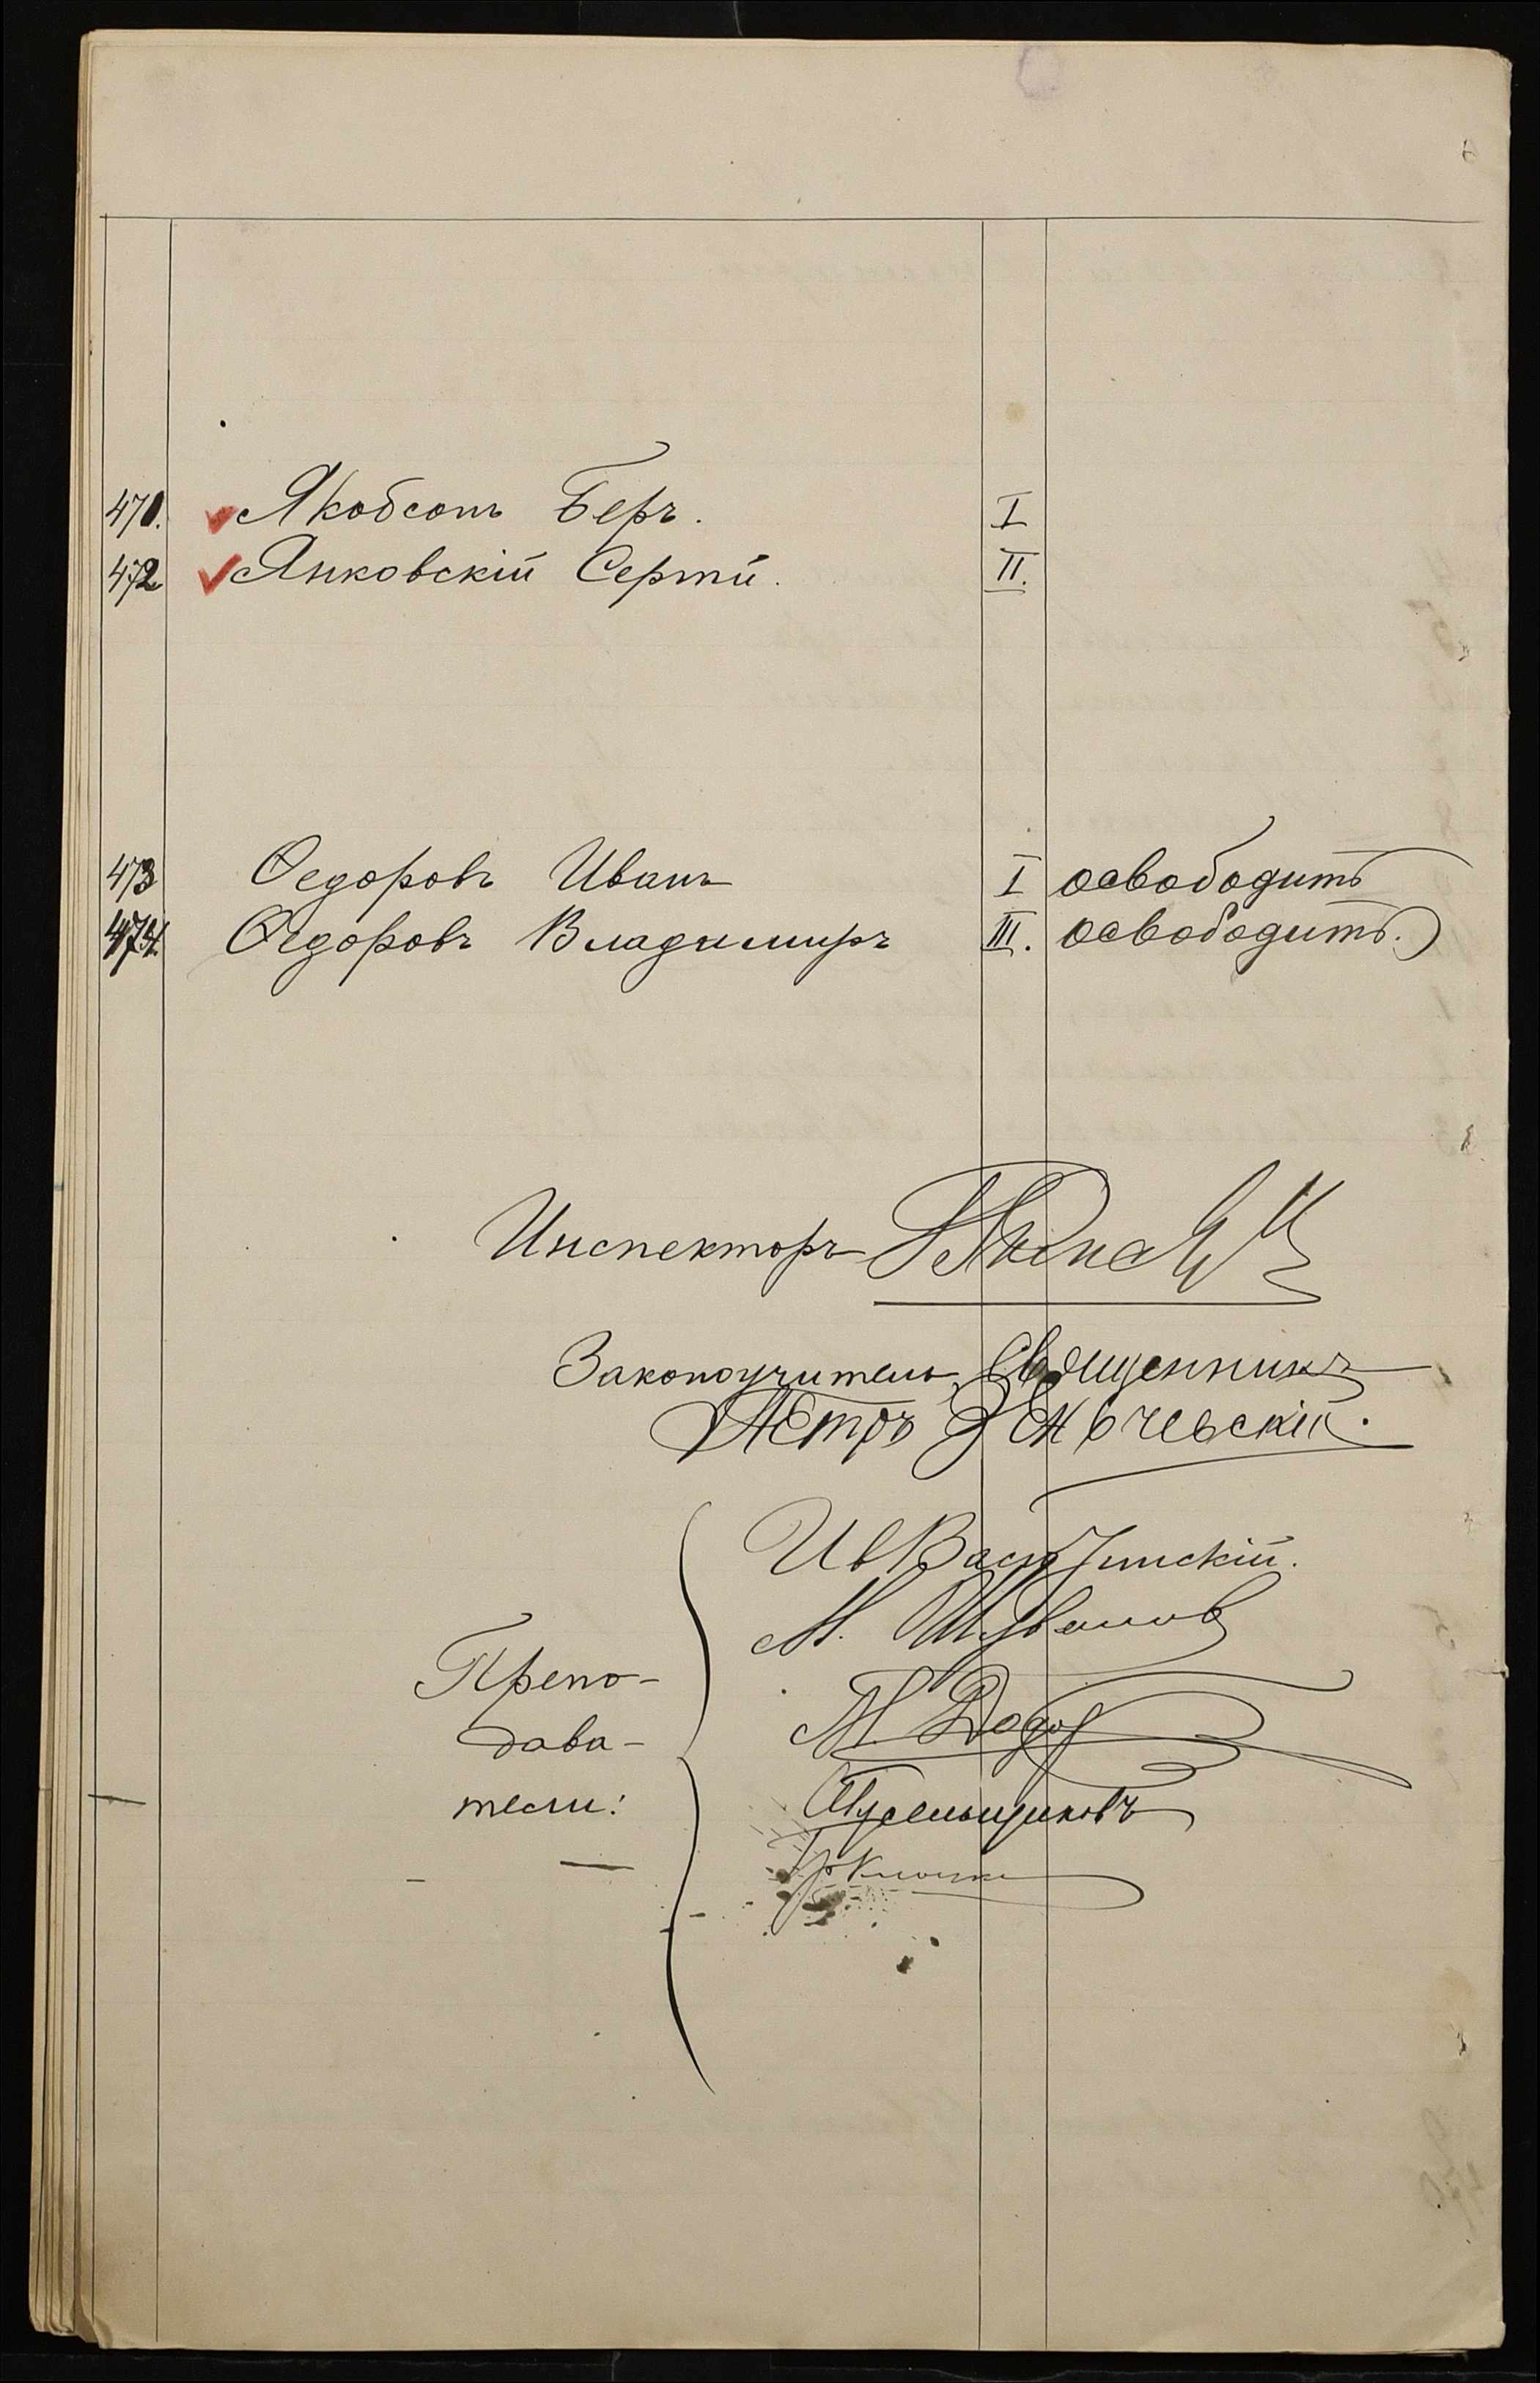 470. Якобсонъ Беръ. I
472 Янковскій Сергѣй. II.
473 Ѳедоровъ Иванъ I освободить
474. Ѳедоровъ Владимиръ III. освободить.
Инспекторъ
Законоучитель, Священникъ
Петръ Зеньчевскій.
Препо-
дава-
тели:
М. Шувалов